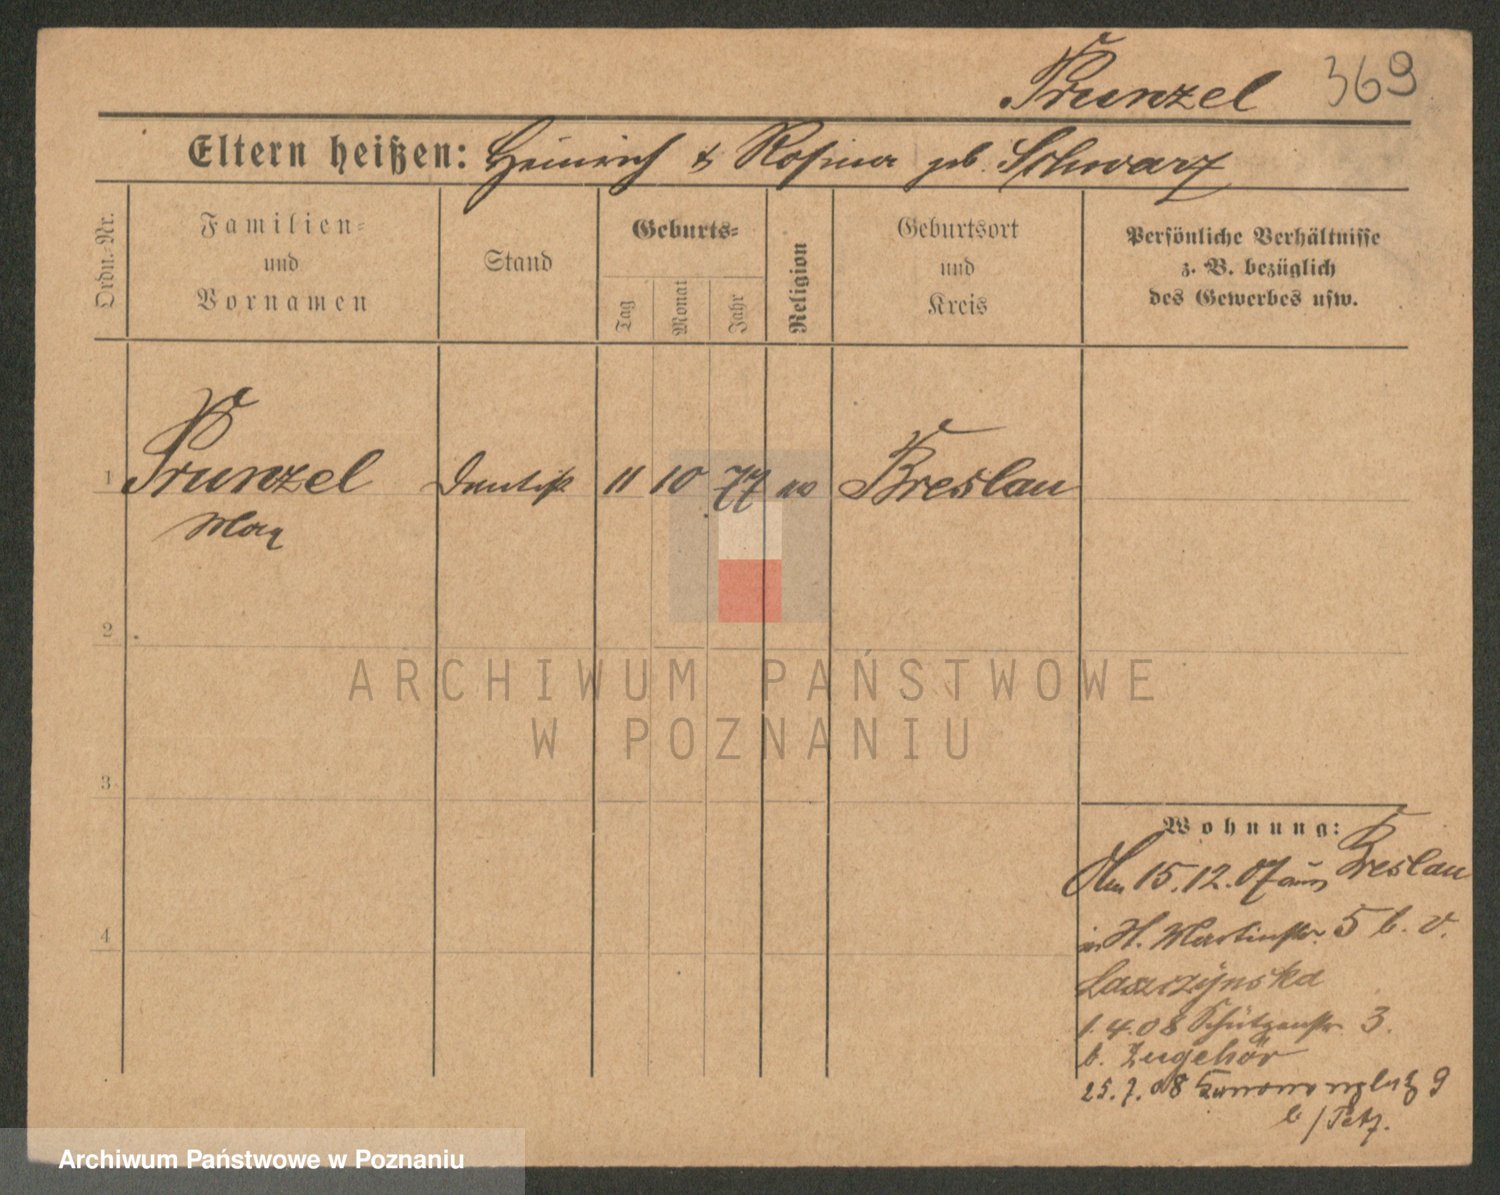 Prunzel 369
Eltern heißen: Heinrich & Rosina geb. Schwarz
Ordn.-Nr.
Familien-
und
Vornamen
Stand
Geburts-
Tag
Monat
Jahr
Religion
Geburtsort
und
Kreis
Persönliche Verhältnisse
z. B. bezüglich
des Gewerbes usw.
1
Prunzel
Max
Dentist
11 10 77
Breslau
2
3
4
Wohnung:
Am 15.12.07 aus Breslau
in St. Martinstr. 5 b. v.
Laszczynska
1.4.08 Schützenstr. 3.
b. Zugehör
25.7.08 9
b/
ARCHIWUM PAŃSTWOWE
W POZNANIU
Archiwum Państwowe w Poznaniu